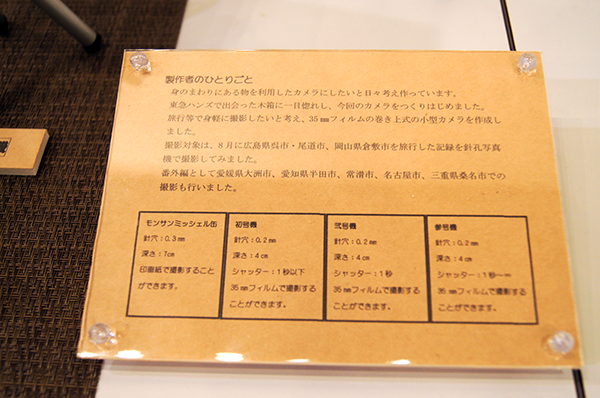 製作者のひとりごと
身のまわりにある物を利用したカメラにしたいと日々考え作っています。
東急ハンズで出会った木箱に一目惚れし、今回のカメラをつくりはじめました。
旅行等で身軽に撮影したいと考え、35㎜フィルムの巻き上式の小型カメラを作成し
ました。
撮影対象は、8月に広島県呉市・尾道市、岡山県倉敷市を旅行した記録を針孔写真
機で撮影してみました。
番外編として愛媛県大洲市、愛知県半田市、常滑市、名古屋市、三重県桑名市での
撮影も行いました。
モンサンミッシェル缶
針穴：0.3㎜
深さ：7㎝
印画紙で撮影すること
ができます。
初号機
針穴：0.2㎜
深さ：4㎝
シャッター：1秒以下
35㎜フィルムで撮影する
ことができます。
弐号機
針穴：0.2㎜
深さ：4㎝
シャッター：1秒
35㎜フィルムで撮影する
ことができます。
参号機
針穴：0.2㎜
深さ：4㎝
シャッター：1秒～∞
35㎜フィルムで撮影する
ことができます。